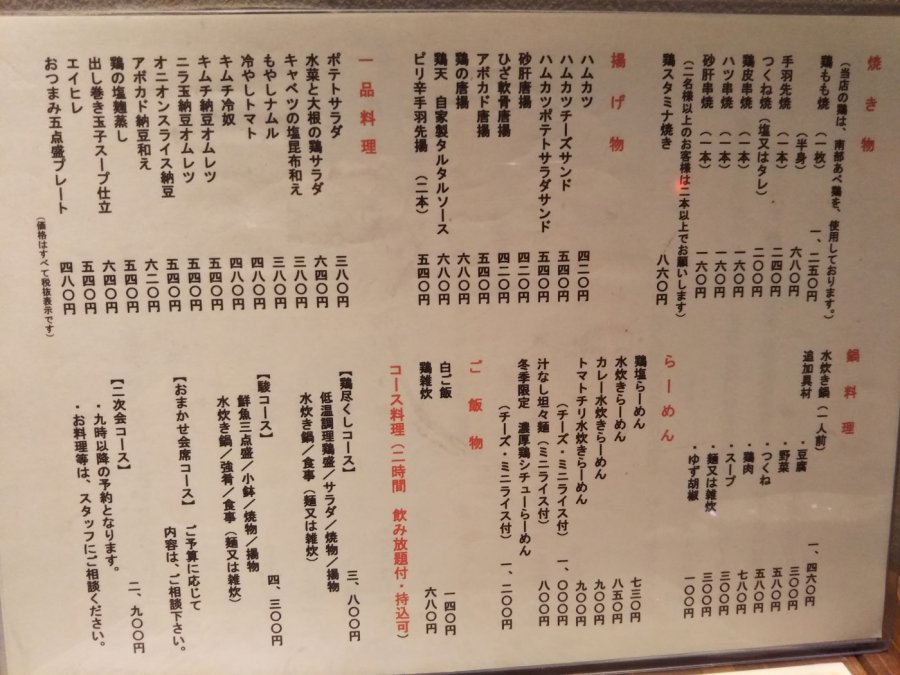 焼き物
(当店の鶏は、南部あべ鶏を、使用しております。)
鶏もも焼 (一枚) 一、二五〇円
(半身) 六八〇円
手羽先焼 (一本) 二四〇円
つくね焼 (塩又はタレ) 二〇〇円
鶏皮串焼 (一本) 一六〇円
ハツ串焼 (一本) 一六〇円
砂肝串焼 (一本) 一六〇円
(二名様以上のお客様は二本以上でお願いします)
鶏スタミナ焼き 八六〇円
揚げ物
ハムカツ 四二〇円
ハムカツチーズサンド 五四〇円
ハムカツポテトサラダサンド 五四〇円
砂肝唐揚 四二〇円
ひざ軟骨唐揚 四二〇円
アボカド唐揚 五四〇円
鶏の唐揚 六八〇円
鶏天 自家製タルタルソース 六八〇円
ピリ辛手羽先揚 (二本) 五四〇円
一品料理
ポテトサラダ 三八〇円
水菜と大根の鶏サラダ 六四〇円
キャベツの塩昆布和え 三八〇円
もやしナムル 三八〇円
冷やしトマト 四八〇円
キムチ冷奴 四八〇円
キムチ納豆オムレツ 五四〇円
ニラ玉納豆オムレツ 五四〇円
オニオンスライス納豆 五四〇円
アボカド納豆和え 六二〇円
鶏の塩麹蒸し 五四〇円
出し巻き玉子スープ仕立 六四〇円
エイヒレ 五四〇円
おつまみ五点盛プレート 四八〇円
(価格はすべて税抜表示です)
鍋料理
水炊き鍋(一人前) 一、四六〇円
追加具材
・豆腐 三〇〇円
・野菜 五八〇円
・つくね 五八〇円
・鶏肉 七八〇円
・スープ 三〇〇円
・麺又は雑炊 三〇〇円
・ゆず胡椒 一〇〇円
らーめん
鶏塩らーめん 七三〇円
水炊きらーめん 八五〇円
カレー水炊きらーめん 九〇〇円
トマトチリ水炊きらーめん 九〇〇円
(チーズ・ミニライス付) 一、〇〇〇円
汁なし坦々麺(ミニライス付) 八〇〇円
冬季限定 濃厚鶏シチューらーめん
(チーズ・ミニライス付) 一、二〇〇円
ご飯物
白ご飯 一四〇円
鶏雑炊 六八〇円
コース料理(二時間 飲み放題付・持込可)
【鶏尽くしコース】 三、八〇〇円
低温調理鶏盛/サラダ/焼物/揚物
水炊き鍋/食事(麺又は雑炊)
【駿コース】 四、三〇〇円
鮮魚三点盛/小鉢/焼物/揚物
水炊き鍋/強肴/食事(麺又は雑炊)
【おまかせ会席コース】 ご予算に応じて
内容は、ご相談下さい。
【二次会コース】 二、九〇〇円
・九時以降の予約となります。
・お料理等は、スタッフにご相談ください。